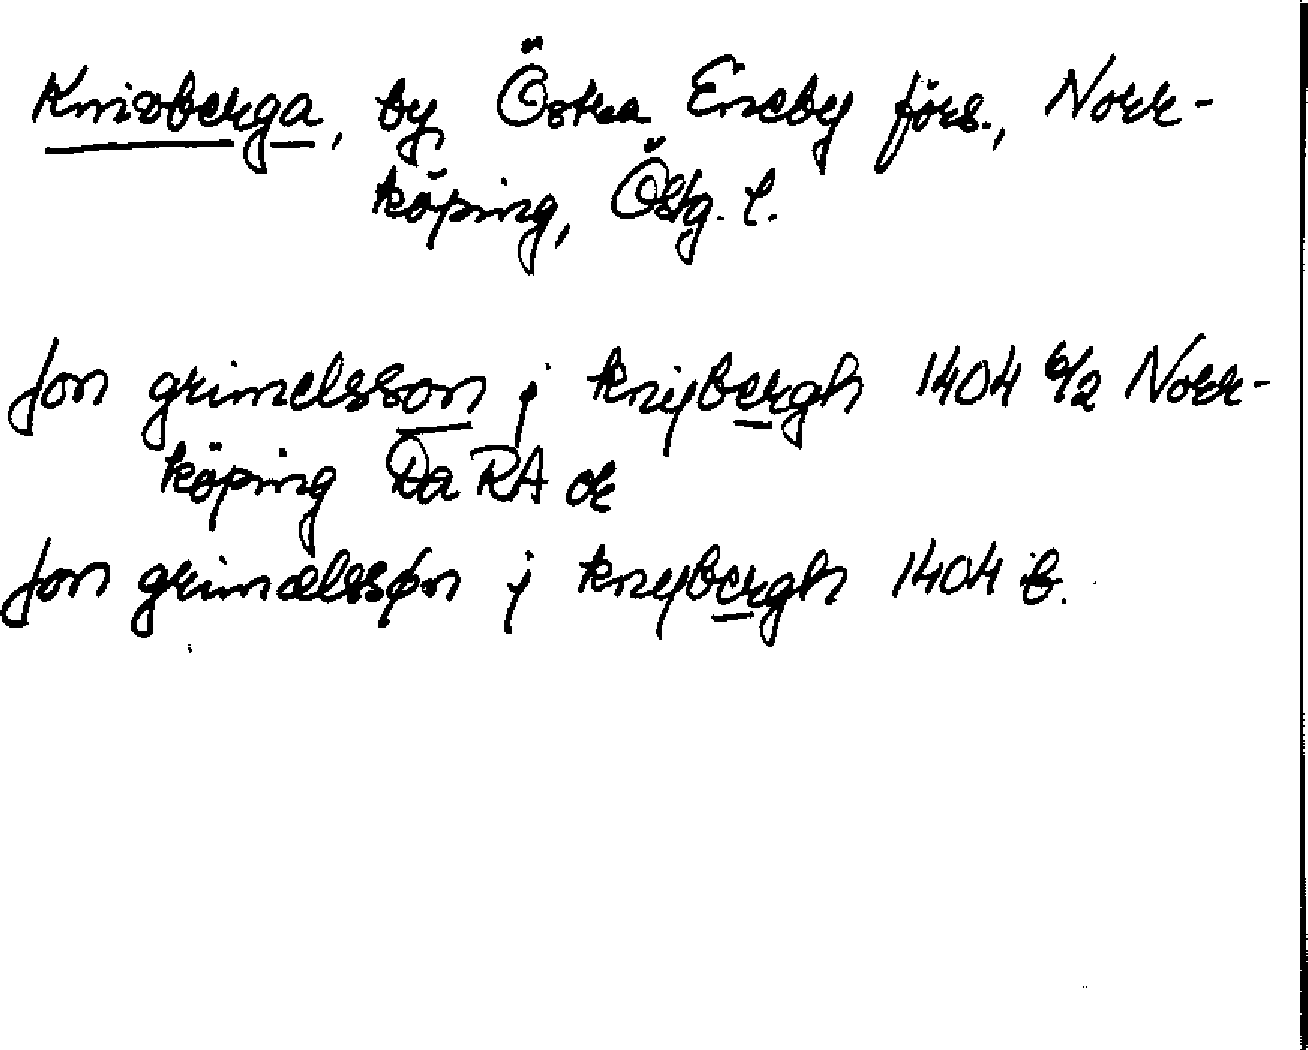 Knivberga, by, Östra Eneby förs., Norr-
köping, Östg. l.
Jon grimelsson j knijbergh 1404 6/2 Norr-
köping Da RA or
Jon grimælssøn j knijbergh 1404 ib.